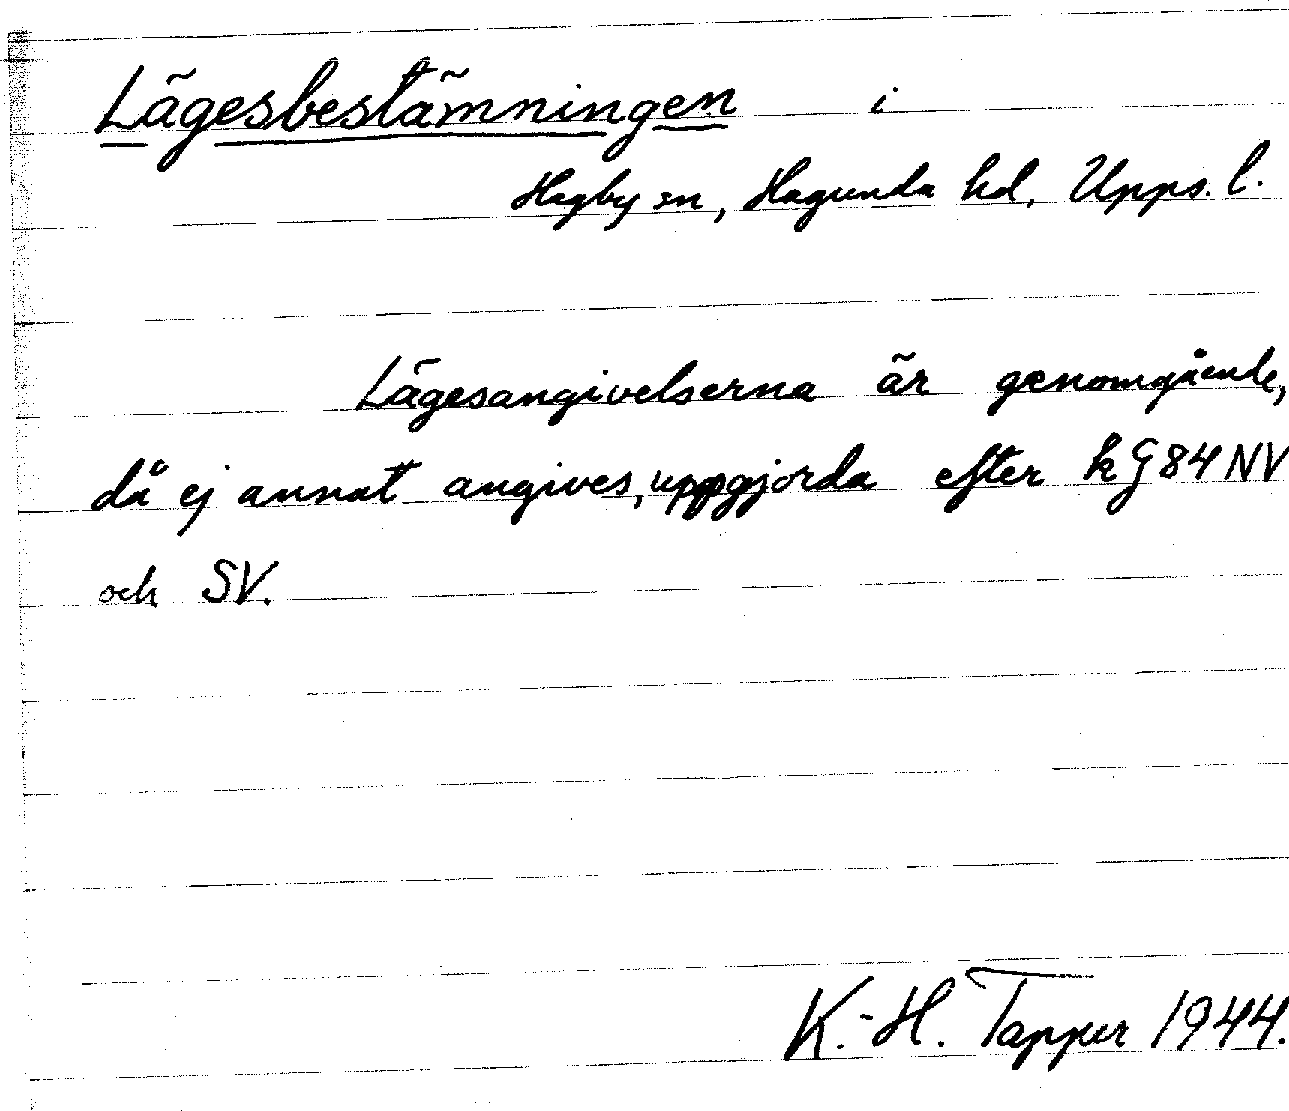 Lägesbestämningen i
Hagby sn, Hagunda hd, Upps. l.
Lägesangivelserna är genomgående,
då ej annat angives, uppgjorda efter k G 84 NV
och SV.
K.-H. Tapper 1944.